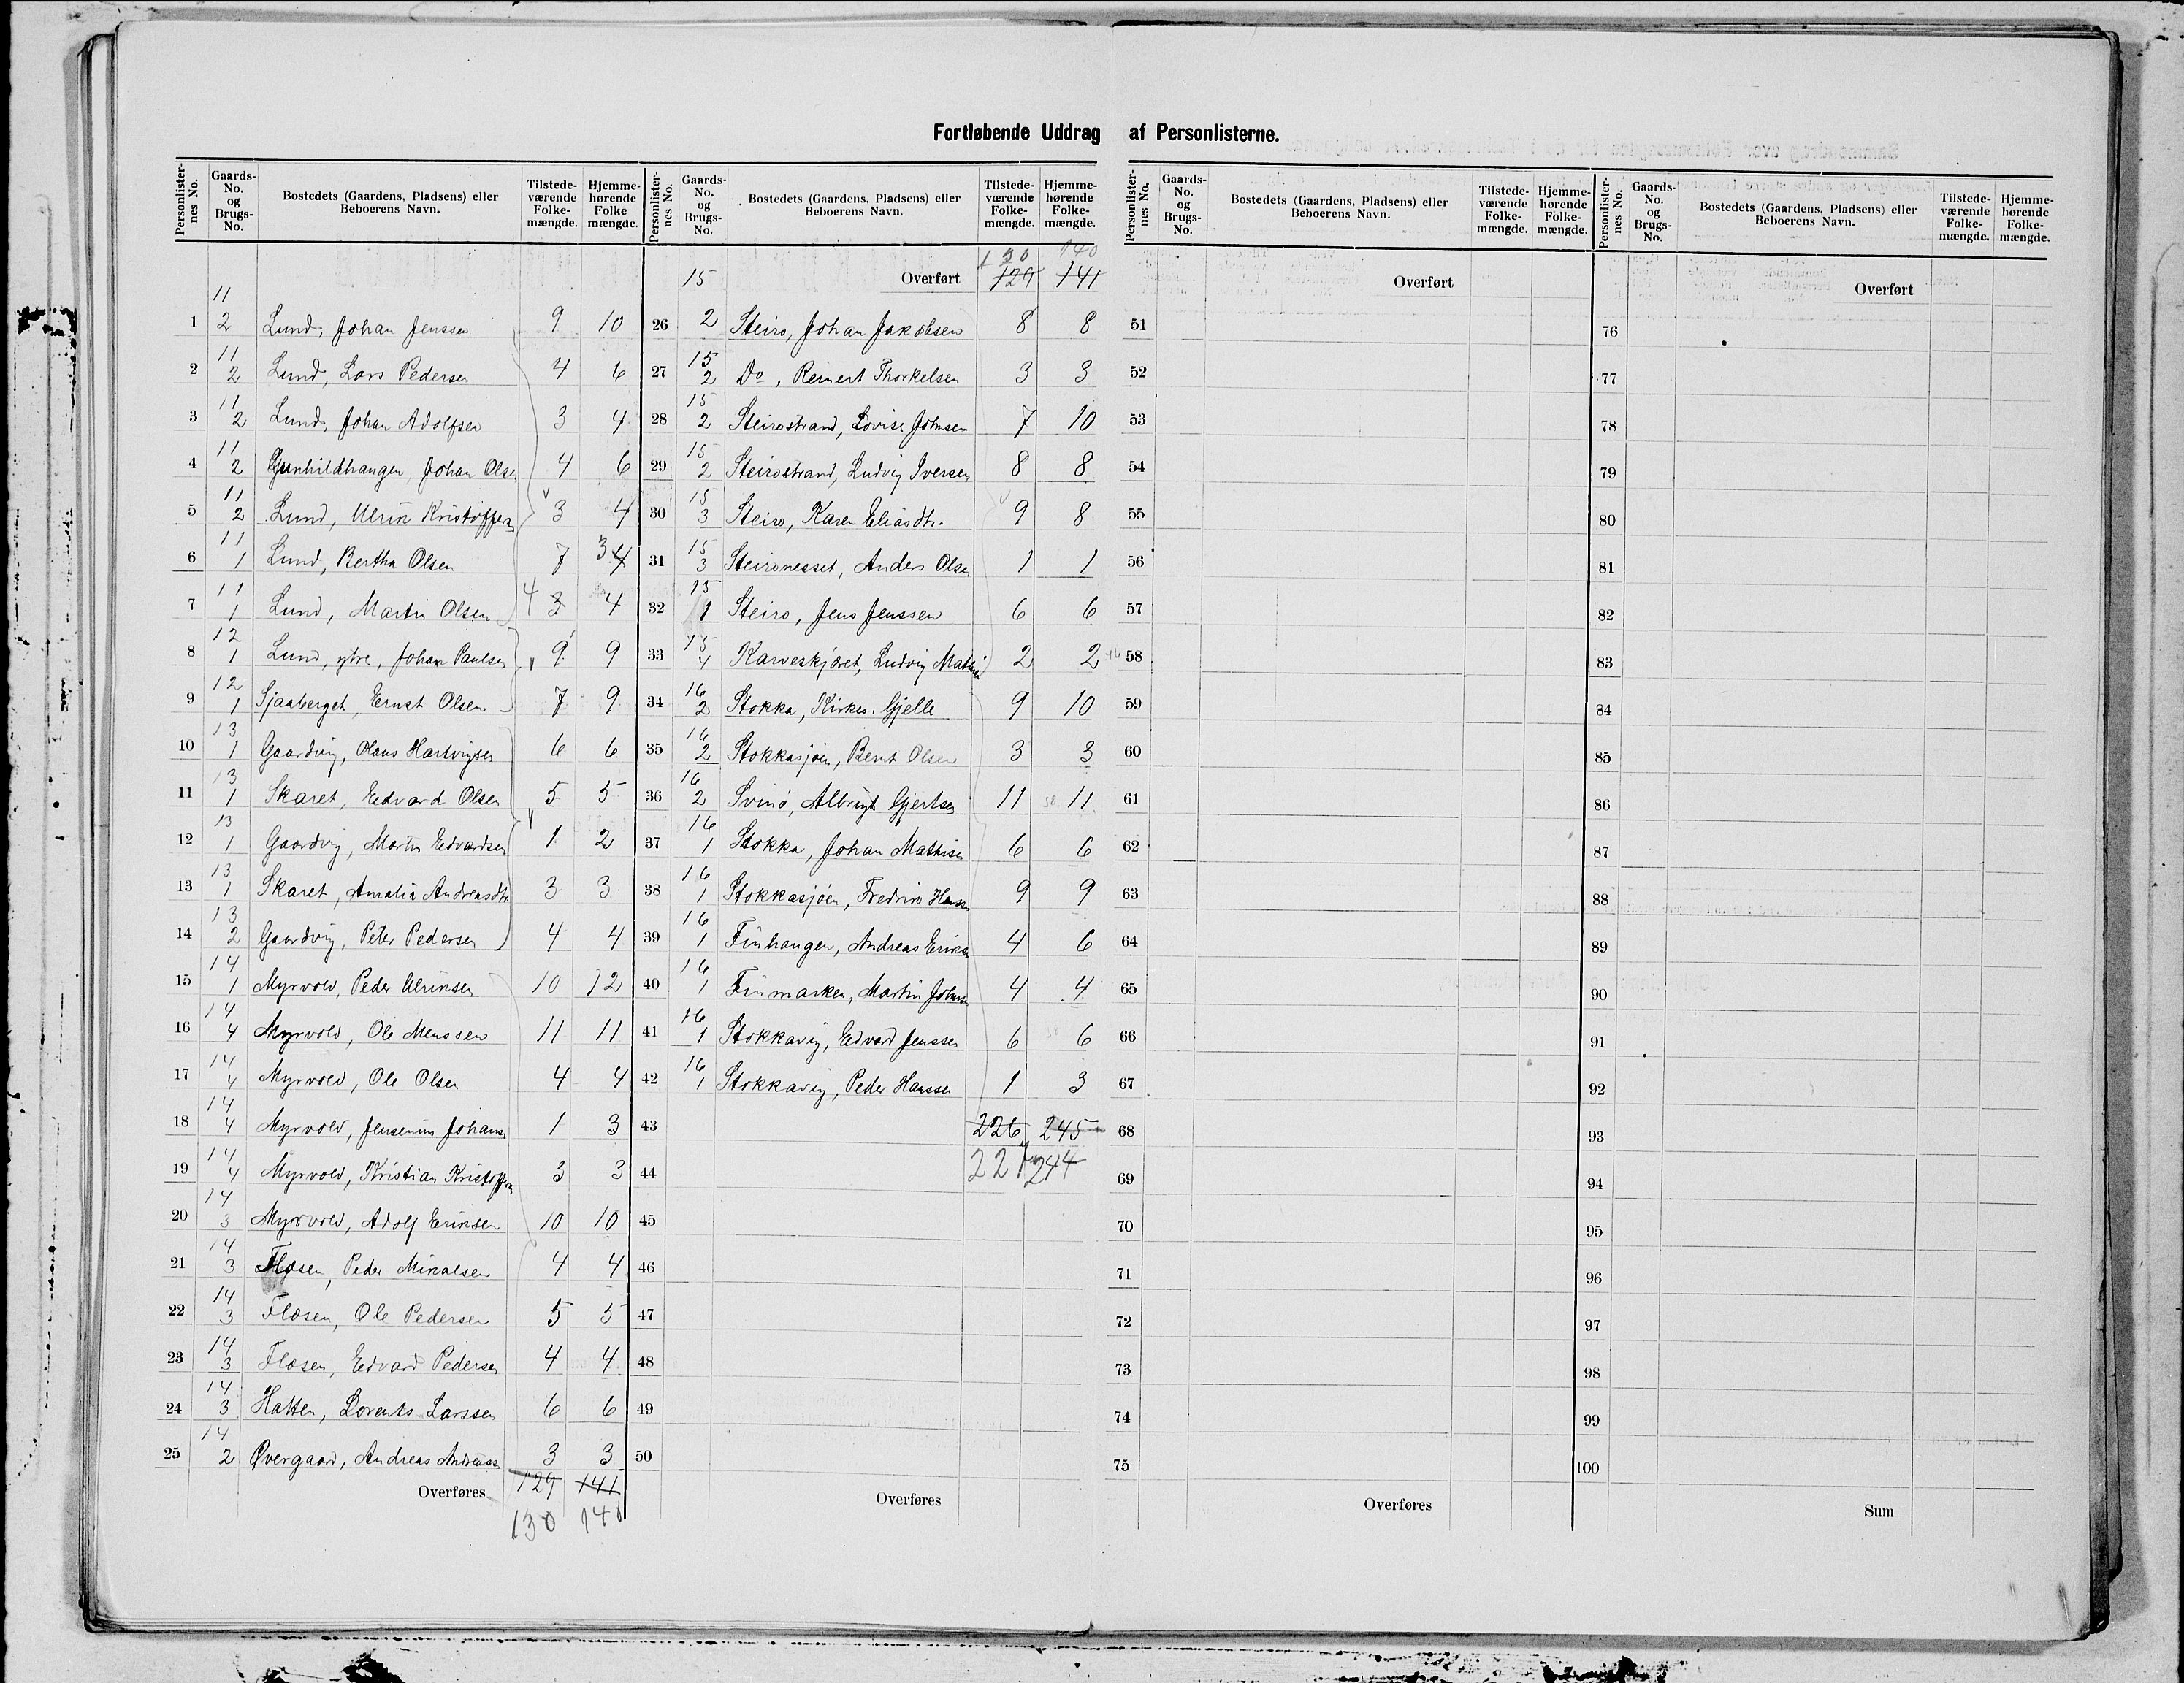 Fortløbende Uddrag af Personlisterne.
Personlister-nes No. Gaards-No. og Brugs-No. Bostedets (Gaardens, Pladsens) eller Beboerens Navn. Tilstede-værende Folke-mængde. Hjemme-hørende Folke mængde.
1 11 2 Lund, Johan Jenssen 9 10
2 11 2 Lund, Lars Pedersen 4 6
3 11 2 Lund, Johan Adolfsen 3 4
4 11 2 Gunhildhaugen, Johan Olsen 4 6
5 11 2 Lund, Ulrik Kristoffersen 3 4
6 11 1 Lund, Bertha Olsen 7 3 4
7 11 1 Lund, Martin Olsen 4 3 4
8 12 1 Lund, ytre, Johan Paulsen 9 9
9 12 1 Sjaaberget, Ernst Olsen 7 9
10 13 1 Gaardvig, Hans Hartvigsen 6 6
11 13 1 Skaret, Edvard Olsen 5 5
12 13 1 Gaardvig, Martin Edvardsen 1 2
13 13 1 Skaret, Amalia Andreasdtr 3 3
14 13 2 Gaardvig, Peter Pedersen 4 4
15 14 1 Myrvold, Peder Ulriksen 10 12
16 14 4 Myrvold, Ole Monssen 11 11
17 14 4 Myrvold, Ole Olsen 4 4
18 14 4 Myrvold, Jensenius Johans 1 3
19 14 4 Myrvold, Kristian Kristoffersen 3 3
20 14 3 Myrvold, Adolf Eriksen 10 10
21 14 3 Flosen, Peder Mikalsen 4 4
22 14 3 Flosen, Ole Pedersen 5 5
23 14 3 Flosen, Edvard Pedersen 4 4
24 14 3 Hatten, Lorents Larssen 6 6
25 14 2 Øvergaard, Andreas Andreass 3 3
Overføres 129 141
130 140
Personlister-nes No. Gaards-No. og Brugs-No. Bostedets (Gaardens, Pladsens) eller Beboerens Navn. Tilstede-værende Folke-mængde. Hjemme-hørende Folke-mængde.
130 140
15 Overført 129 141
26 2 Steiro, Johan Jakobsen 8 8
27 15 2 Do, Reinert Thorkelsen 3 3
28 15 2 Steirostrand, Lovise Johnsen 7 10
29 15 2 Steirostrand, Ludvig Iversen 8 8
30 15 3 Steiro, Karen Eliasdtr. 9 8
31 15 3 Steironesset, Anders Olsen 1 1
32 15 1 Steiro, Jens Jenssen 6 6
33 15 4 Karveskjæret, Ludvig Mathis 2 2
34 16 2 Stokka, Kirkes. Gjelle 9 10
35 16 2 Stokkasjøen, Bernt Olsen 3 3
36 16 2 Svinø, Albrigt Gjertsen 11 11
37 16 1 Stokka, Johan Mathisen 6 6
38 16 1 Stokkasjøen, Fredrik Hanssen 9 9
39 16 1 Finhaugen, Andreas Eriksen 4 6
40 16 1 Finmarken, Martin Johnsen 4 4
41 16 1 Stokkavig, Edvard Jenssen 6 6
42 16 1 Stokkavig, Peder Hanssen 1 3
43 226 245
44 227 244
45
46
47
48
49
50
Overføres
Personlister-nes No. Gaards-No. og Brugs-No. Bostedets (Gaardens, Pladsens) eller Beboerens Navn. Tilstede-værende Folke-mængde. Hjemme-hørende Folke-mængde.
Overført
51
52
53
54
55
56
57
58
59
60
61
62
63
64
65
66
67
68
69
70
71
72
73
74
75
Overføres
Personlister-nes No. Gaards-No. og Brugs-No. Bostedets (Gaardens, Pladsens) eller Beboerens Navn. Tilstede-værende Folke-mængde. Hjemme-hørende Folke-mængde.
Overført
76
77
78
79
80
81
82
83
84
85
86
87
88
89
90
91
92
93
94
95
96
97
98
99
100
Sum